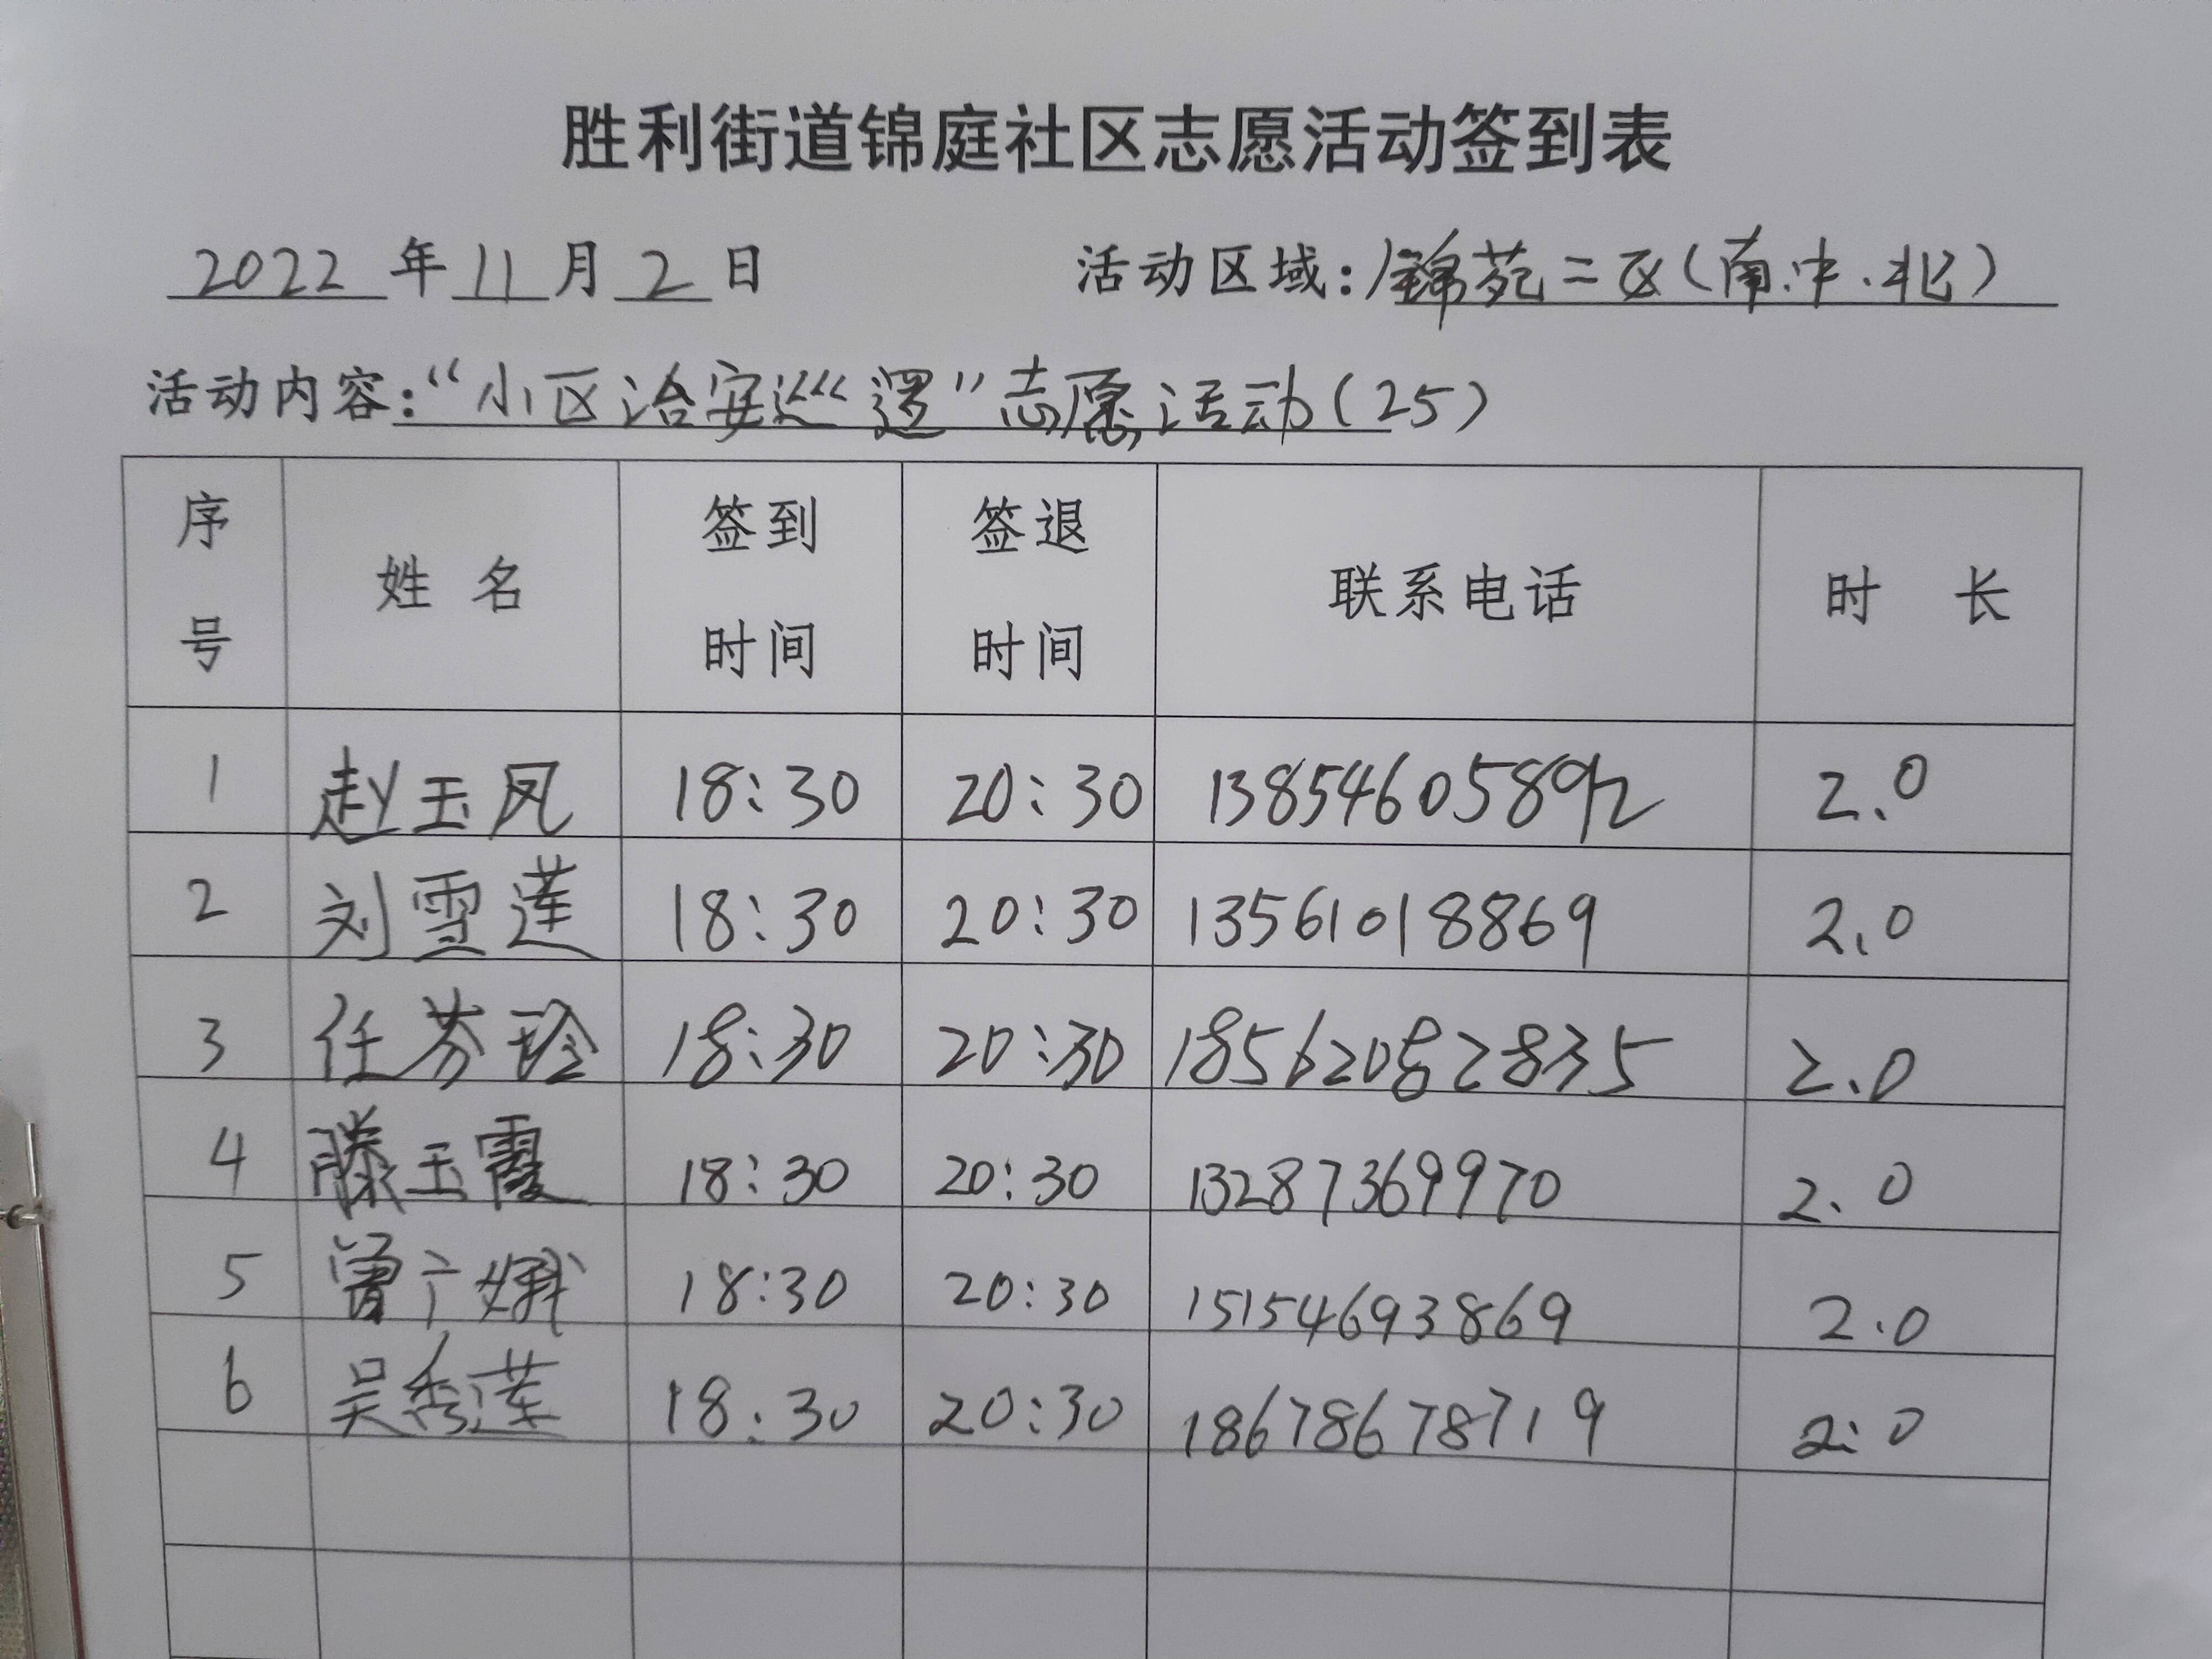 胜利街道锦庭社区志愿活动签到表
2022年11月2日 活动区域：锦苑二区（南.中.北）
活动内容：“小区治安巡逻”志愿活动（25）
序号 姓名 签到时间 签退时间 联系电话 时长
1 赵玉凤 18:30 20:30 13854605892 2.0
2 刘雪莲 18:30 20:30 13561018869 2.0
3 任芬玲 18:30 20:30 18562082835 2.0
4 滕玉霞 18:30 20:30 13287369970 2.0
5 曾广娥 18:30 20:30 15154693869 2.0
6 吴秀莲 18:30 20:30 18678678719 2.0